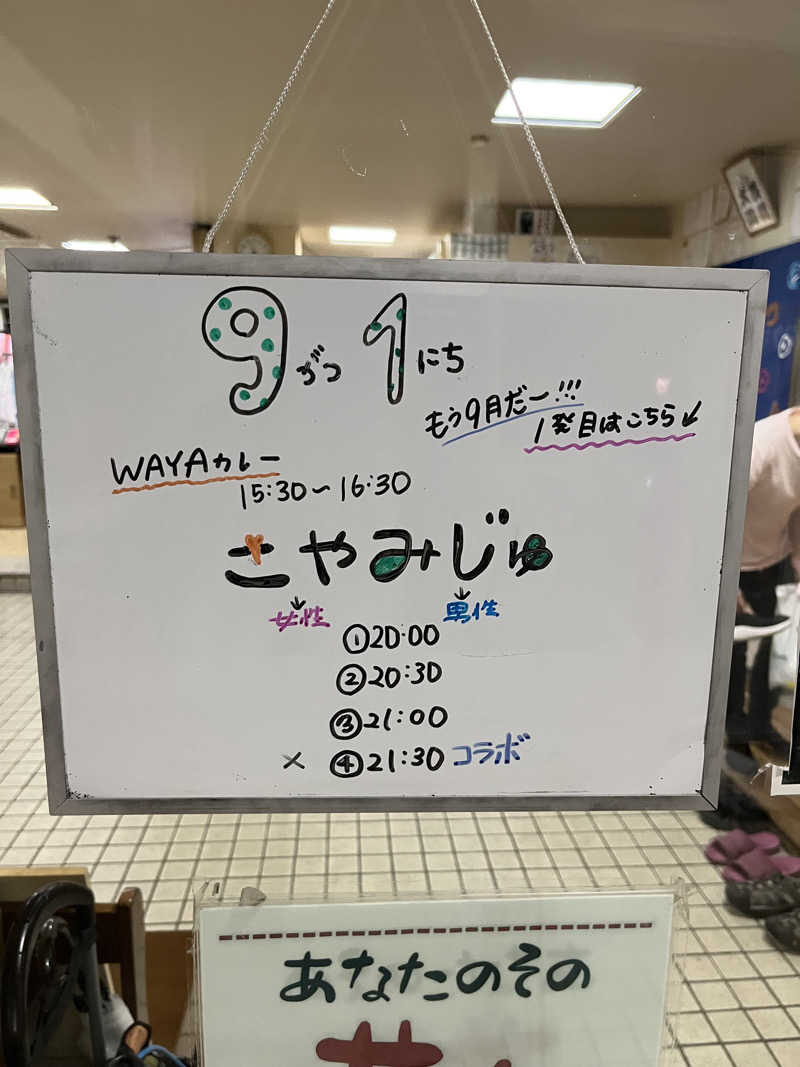 9がつ 1にち
もう9月だー!!!
1発目はこちら↙
WAYAカレー
15:30〜16:30
こやみじゅ
↓ ↓
女性 男性
①20:00
②20:30
③21:00
× ④21:30 コラボ
あなたのその